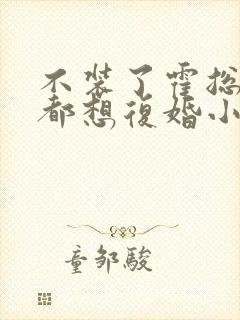 不装了霍总
都想復婚小
童邹駿